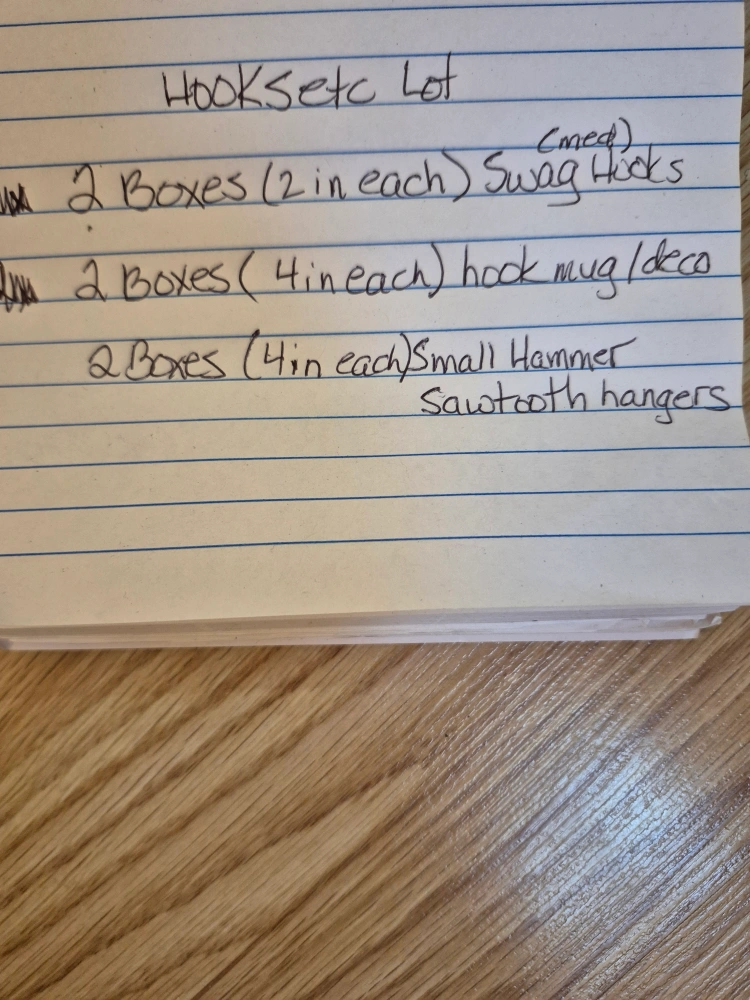 Hooksetc Lot
(med)
2 Boxes (2 in each) Swag Hooks
2 Boxes (4 in each) hook mug/deco
2 Boxes (4 in each) Small Hammer
Sawtooth hangers